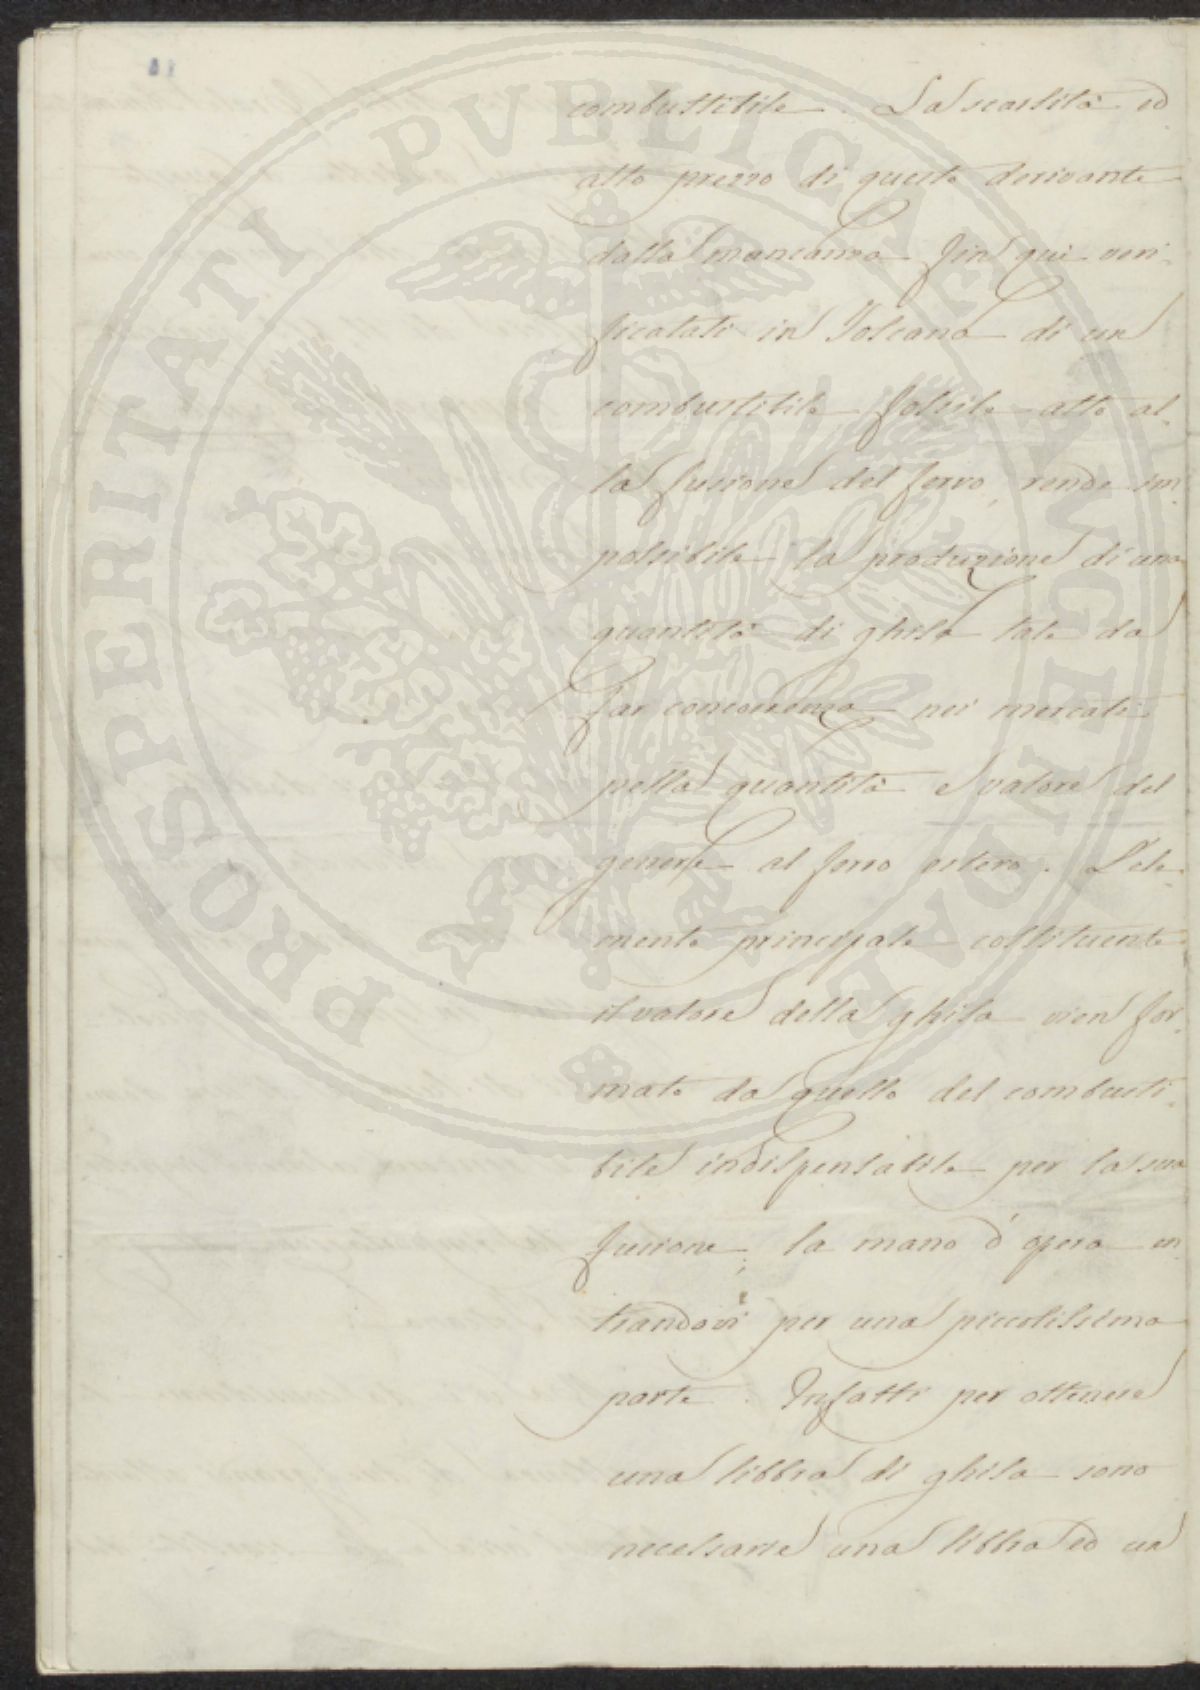 combustibile. La scarsità ed
alto prezzo di questo derivante
dalla mancanza fin qui veri-
ficatasi in Toscana di un
combustibile fossile atto al-
la fusione del ferro, rende im-
possibile la produzione di una
quantità di ghisa tale da
far concorrenza nei mercati
pella quantità e valore del
genere al ferro estero. L'ele-
mento principale costituente
il valore della ghisa vien for-
mato da quello del combusti-
bile indispensabile per la sua
fusione; la mano d'opera en-
trandovi per una piccolissima
parte. Infatti per ottenere
una libbra di ghisa sono
necessarie una libbra ed un
PROSPERITATI PVBLICAE AVGENDAE